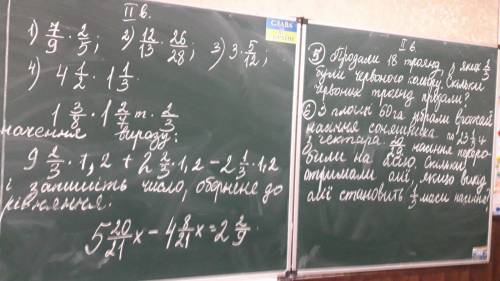 II в.
1) 7/9 · 2/5; 2) 12/13 · 26/28; 3) 3 · 5/12;
4) 4 1/2 · 1 1/3
1 3/8 · 1 2/7 m · 2/3
начення виразу:
9 2/3 · 1,2 + 2 2/3 · 1,2 - 2 1/3 · 1,2
і запишіть число, обернене до
рівняння:
5 20/21 x - 4 8/21 x = 2 2/9.
II в
5) Продали 18 троянд, з яких
були червоного кольору. Скільки
червоних троянд продали?
6) З площі 60 га зібрали врожай
насіння соняшника по 23 1/3 ц
з гектара. насіння переро-
били на олію. Скільки
отримали олії, якщо вихід
олії становить маси насіння?